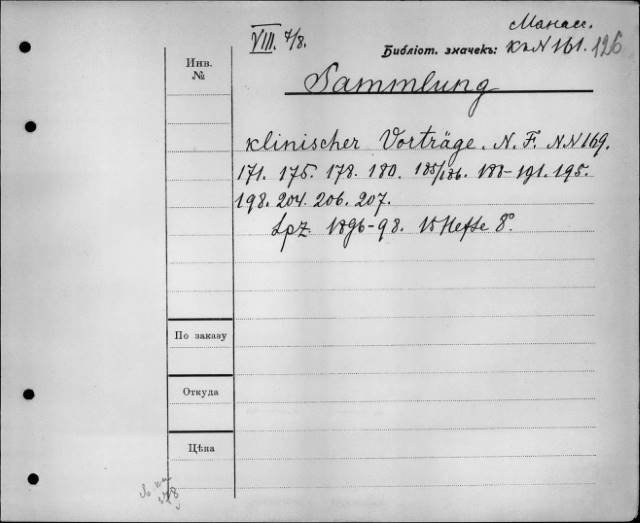 Манас.
VIII. 7/8. Библіот. значекъ: Кк N 161. 126
Инв.
№
Sammlung
klinischer Vorträge. N. F. N.N 169.
171. 175. 178. 180. 185/186. 188-191. 195.
198. 204. 206. 207.
Lpz. 1896-98. 15 Hefte 8°.
По заказу
Откуда
Цѣна